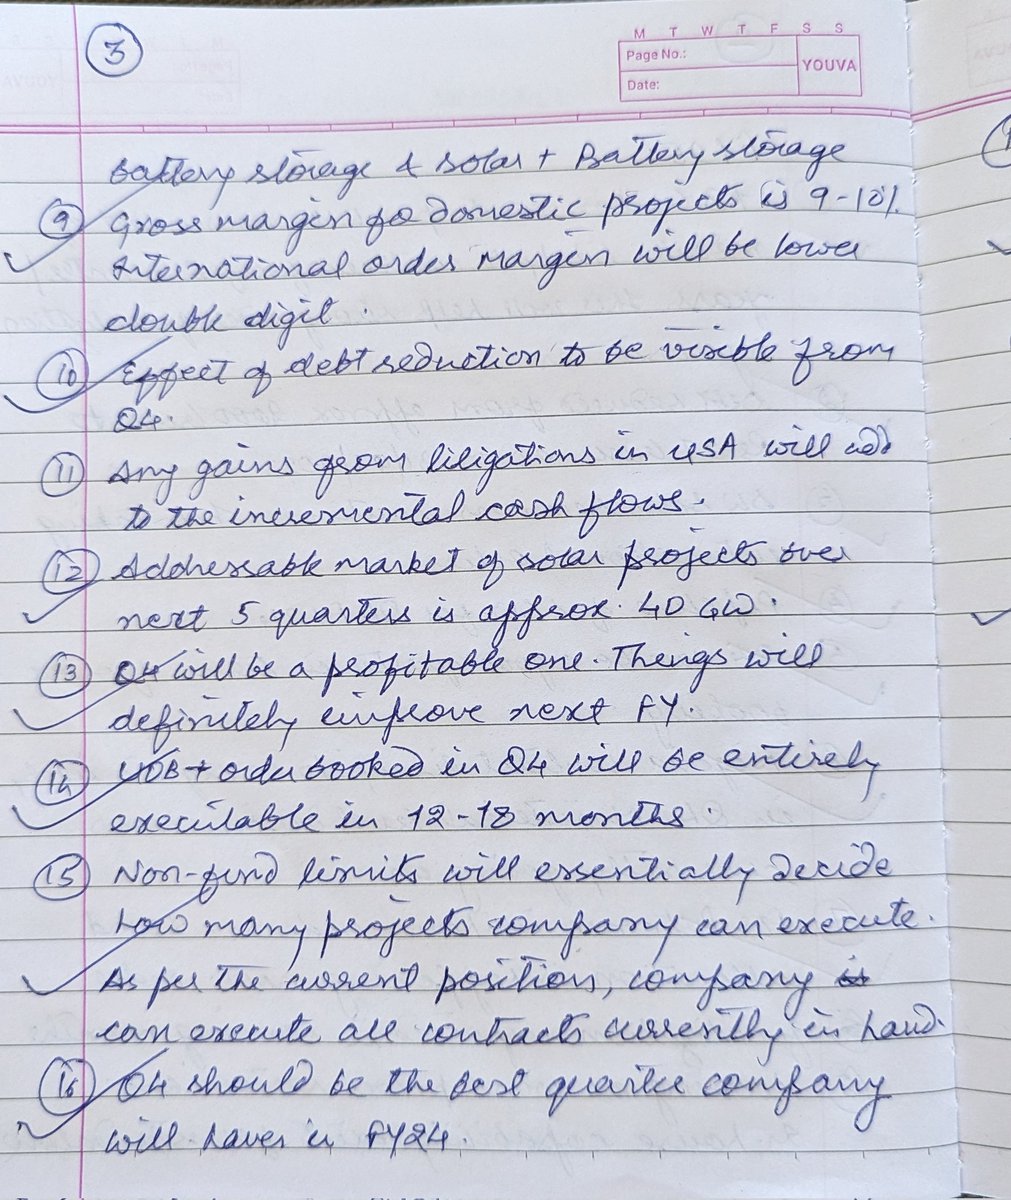 3
M T W T F S S
Page No.:
YOUVA
Date:
Battery storage & solar + Battery storage
9 Gross margin for domestic projects is 9-10%.
International order margin will be lower
double digit.
10 Effect of debt reduction to be visible from
Q4.
11 Any gains from litigations in USA will add
to the incremental cash flows.
12 Addressable market of solar projects over
next 5 quarters is approx. 40 GW.
13 Q4 will be a profitable one. Things will
definitely improve next FY.
14 UOB + order booked in Q4 will be entirely
executable in 12-18 months.
15 Non-fund limits will essentially decide
how many projects company can execute.
As per the current position, company is
can execute all contracts currently in hand.
16 Q4 should be the best quarter company
will have in FY24.